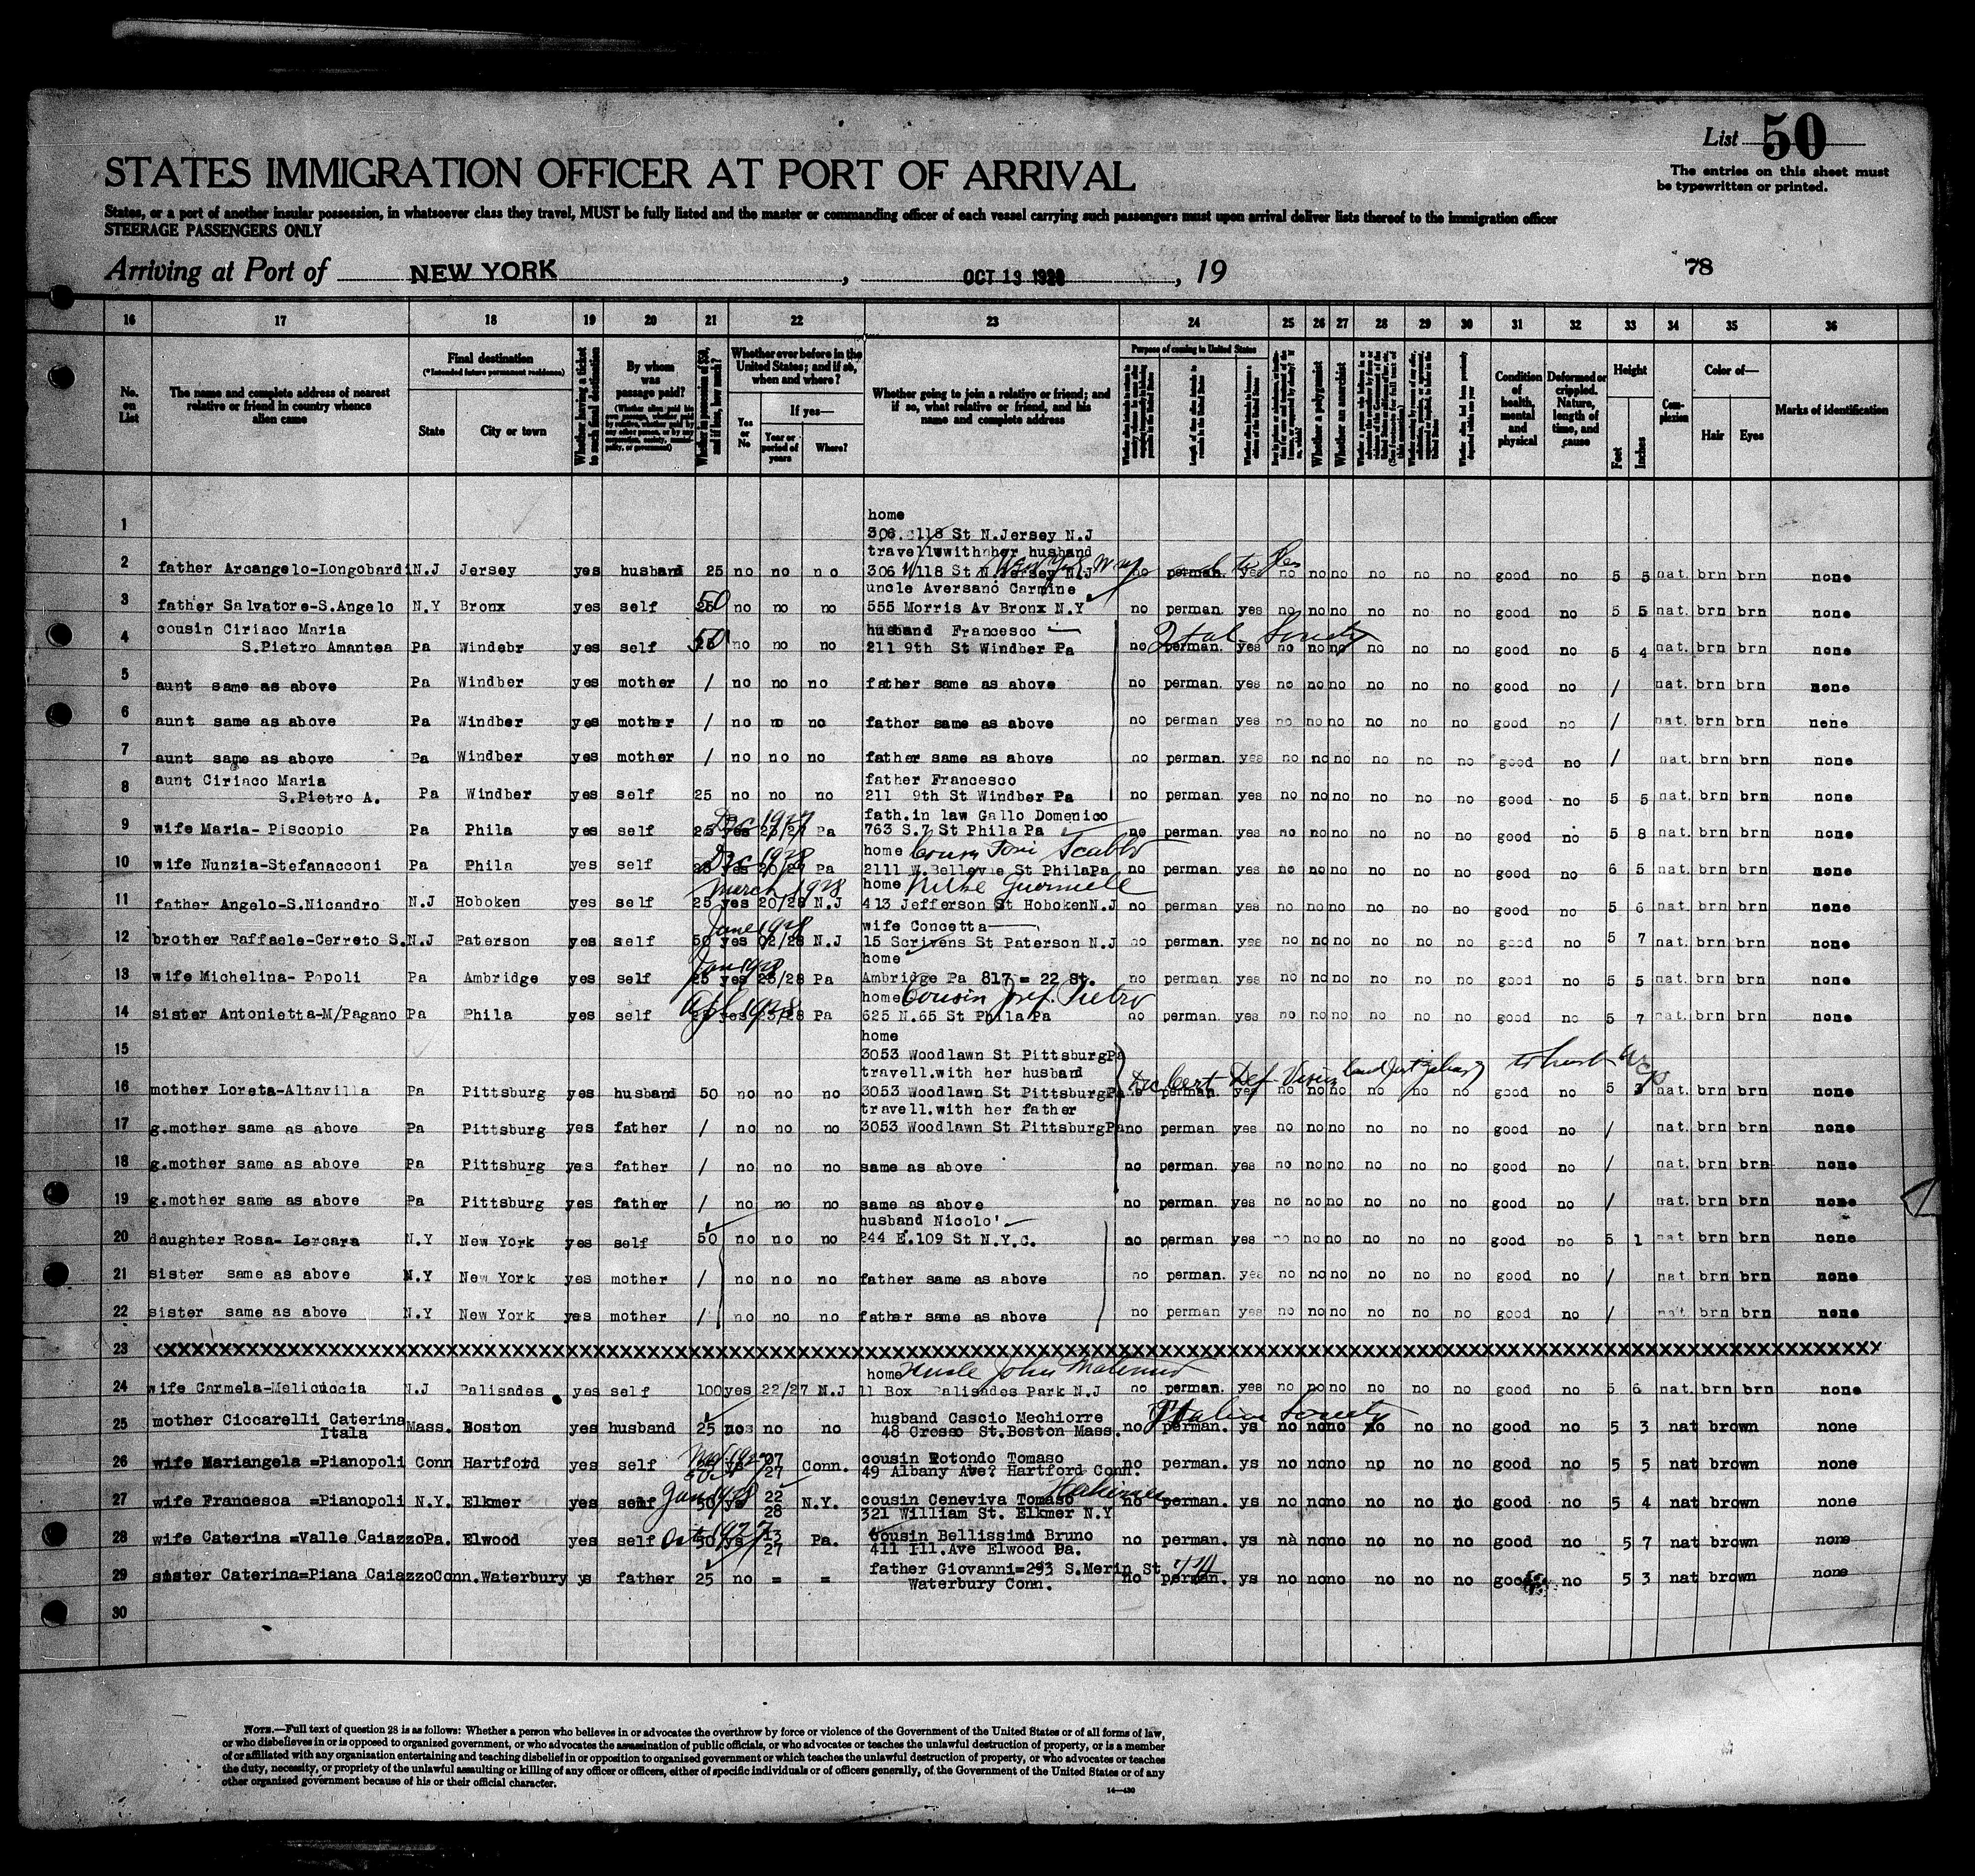 List 50
The entries on this sheet must
be typewritten or printed.
STATES IMMIGRATION OFFICER AT PORT OF ARRIVAL
States, or a port of another insular possession, in whatsoever class they travel, MUST be fully listed and the master or commanding officer of each vessel carrying such passengers must upon arrival deliver lists thereof to the immigration officer
STEERAGE PASSENGERS ONLY
Arriving at Port of NEW YORK, OCT 13 1928, 19
78
16 17 18 19 20 21 22 23 24 25 26 27 28 29 30 31 32 33 34 35 36
No. on List
The name and complete address of nearest relative or friend in country whence alien came
Final destination
(*Intended future permanent residence)
State
City or town
Whether having a ticket to such final destination
By whom was passage paid?
Whether in possession of $50, and if less, how much?
Whether ever before in the United States; and if so, when and where?
Yes or No
If yes—
Year or period of years
Where?
Whether going to join a relative or friend; and if so, what relative or friend, and his name and complete address
Purpose of coming to United States
Whether a polygamist
Whether an anarchist
Condition of health, mental and physical
Deformed or crippled. Nature, length of time, and cause
Height
Feet
Inches
Complexion
Color of—
Hair
Eyes
Marks of identification
1 home
306 118 St N.Jersey N.J
travell with her husband
2 father Arcangelo-Longobardi N.J Jersey yes husband 25 no no no 306 W 118 St N.Jersey N.J no perman. yes no no no no no no good no 5 5 nat. brn brn none
uncle Aversano Carmine
3 father Salvatore-S.Angelo N.Y Bronx yes self 50 no no no 555 Morris Av Bronx N.Y no perman yes no no no no no no good no 5 5 nat. brn brn none
cousin Ciriaco Maria husband Francesco Ital. Society
4 S.Pietro Amantea Pa Windebr yes self 50 no no no 211 9th St Windber Pa no perman. yes no no no no no no good no 5 4 nat. brn brn none
5 aunt same as above Pa Windber yes mother / no no no father same as above no perman. yes no no no no no no good no / nat. brn brn none
6 aunt same as above Pa Windber yes mother / no no no father same as above no perman yes no no no no no no good no / nat. brn brn none
7 aunt same as above Pa Windber yes mother / no no no father same as above no perman. yes no no no no no no good no / nat. brn brn none
aunt Ciriaco Maria father Francesco
8 S.Pietro A. Pa Windber yes self 25 no no no 211 9th St Windber Pa no perman. yes no no no no no no good no 5 5 nat. brn brn none
Dec 1927 fath.in law Gallo Domenico
9 wife Maria- Piscopio Pa Phila yes self 25 yes 23/27 Pa 763 S.7 St Phila Pa no perman. yes no no no no no no good no 5 8 nat. brn brn none
Dec 1928 home Cousin Toni
10 wife Nunzia-Stefanacconi Pa Phila yes self 25 yes Pa 2111 W.Bellevue St PhilaPa no perman. yes no no no no no no good no 6 5 nat. brn brn none
March 1928 home
11 father Angelo-S.Nicandro N.J Hoboken yes self 25 yes 20/28 N.J 413 Jefferson St HobokenN.J no perman yes no no no no no no good no 5 6 nat brn brn none
June 1928 wife Concetta
12 brother Raffaele-Cerreto S. N.J Paterson yes self 50 yes 02/28 N.J 15 Scrivens St Paterson N.J no perman. yes no no no no no no good no 5 7 nat. brn brn none
Jan 1928 home
13 wife Michelina- Popoli Pa Ambridge yes self 25 yes 23/28 Pa Ambridge Pa 817 = 22 St. no perman. yes no no no no no no good no 5 5 nat. brn brn none
Apl 1928 home Cousin Josef. Pietro
14 sister Antonietta-M/Pagano Pa Phila yes self 25 yes 23/28 Pa 625 N.65 St Phila Pa no perman. yes no no no no no no good no 5 7 nat. brn brn none
15 home
3053 Woodlawn St PittsburgPa
travell.with her husband
16 mother Loreta-Altavilla Pa Pittsburg yes husband 50 no no no 3053 Woodlawn St PittsburgPa no perman. yes no no no no no no good no 5 3 nat. brn brn none
travell.with her father
17 g.mother same as above Pa Pittsburg yes father / no no no 3053 Woodlawn St PittsburgPa no perman yes no no no no no no good no / nat. brn brn none
18 g.mother same as above Pa Pittsburg yes father / no no no same as above no perman. yes no no no no no no good no / nat. brn brn none
19 g.mother same as above Pa Pittsburg yes father / no no no same as above no perman. yes no no no no no no good no / nat. brn brn none
husband Nicolo'
20 daughter Rosa- Lercara N.Y New York yes self 50 no no no 244 E.109 St N.Y.C. no perman. yes no no no no no no good no 5 1 nat brn brn none
21 sister same as above N.Y New York yes mother / no no no father same as above no perman. yes no no no no no no good no / nat brn brn none
22 sister same as above N.Y New York yes mother / no no no father same as above no perman yes no no no no no no good no / nat. brn brn none
23 xxxxxxxxxxxxxxxxxxxxxxxxxxxxxxxxxxxxxxxx
home Uncle John
24 wife Carmela-Melicuccia N.J Palisades yes self 100 yes 22/27 N.J 11 Box Palisades Park N.J no perman. yes no no no no no no good no 5 6 nat. brn brn none
mother Ciccarelli Caterina husband Cascio Mechiorre Italian Society
25 Itala Mass. Boston yes husband 25 no no no 48 Crosso St.Boston Mass. no perman. ys no no no no no no good no 5 3 nat brown none
cousin Rotondo Tomaso
26 wife Mariangela =Pianopoli Conn Hartford yes self 27 Conn. 49 Albany Ave? Hartford Conn. no perman. ys no no no no no no good no 5 5 nat brown none
Jan 1928 22
27 wife Francesca =Pianopoli N.Y. Elkmer yes self 50 ys 28 N.Y. cousin Ceneviva Tomaso no perman. ys no no no no no no good no 5 4 nat brown none
321 William St. Elkmer N.Y
Oct 1927 13 cousin Bellissimo Bruno
28 wife Caterina =Valle Caiazzo Pa. Elwood yes self 50 ys 27 Pa. 411 Ill.Ave Elwood Pa. no perman. ys nà no no no no no good no 5 7 nat brown none
father Giovanni=293 S.Merin St
29 sister Caterina=Piana Caiazzo Conn. Waterbury ys father 25 no = = Waterbury Conn. no perman. ys no no no no no no good no 5 3 nat brown none
30
NOTE.—Full text of question 28 is as follows: Whether a person who believes in or advocates the overthrow by force or violence of the Government of the United States or of all forms of law,
or who disbelieves in or is opposed to organized government, or who advocates the assassination of public officials, or who advocates or teaches the unlawful destruction of property, or is a member
of or affiliated with any organization entertaining and teaching disbelief in or opposition to organized government or which teaches the unlawful destruction of property, or who advocates or teaches
the duty, necessity, or propriety of the unlawful assaulting or killing of any officer or officers, either of specific individuals or of officers generally, of the Government of the United States or of any
other organized government because of his or their official character.
14—430